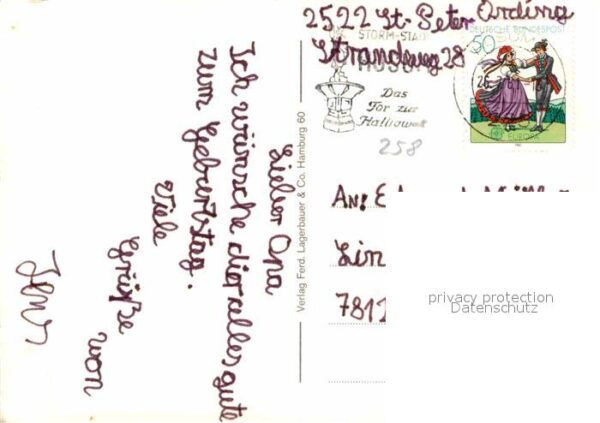 2522 St. Peter Ording
Strandweg 28
STORM-STADT
Das
Tor zur
Halligwelt
DEUTSCHE BUNDESPOST
50
EUROPA
258
Lieber Opa
Ich wünsche dir alles gute
zum Geburtstag.
Viele
Grüße
von
Verlag Ferd. Lagerbauer & Co. Hamburg 60
An:
Lin
7812
privacy protection
Datenschutz